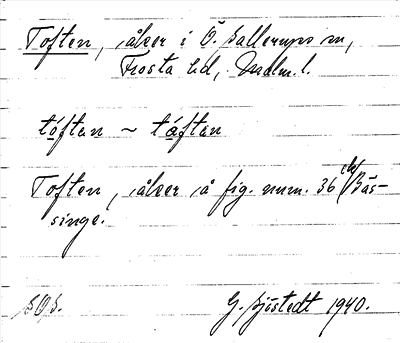 Toften, åker i Ö. Sallerups sn,
Frosta hd, Malm. l.
tóftan ~ táftan
Toften, åker å fig. num. 36 Bäs-
singe.
G. Sjöstedt 1940.